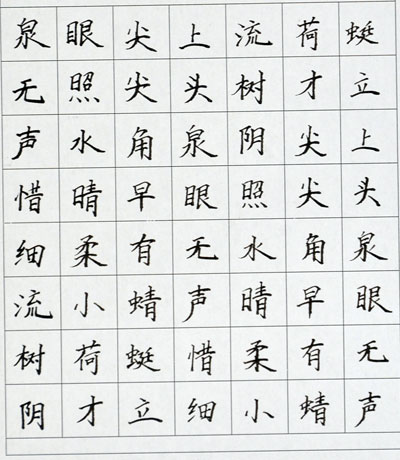 泉眼尖上流荷蜓
无照尖头树才立
声水角泉阴尖上
惜晴早眼照尖头
细柔有无水角泉
流小蜻声晴早眼
树荷蜓惜柔有无
阴才立细小蜻声